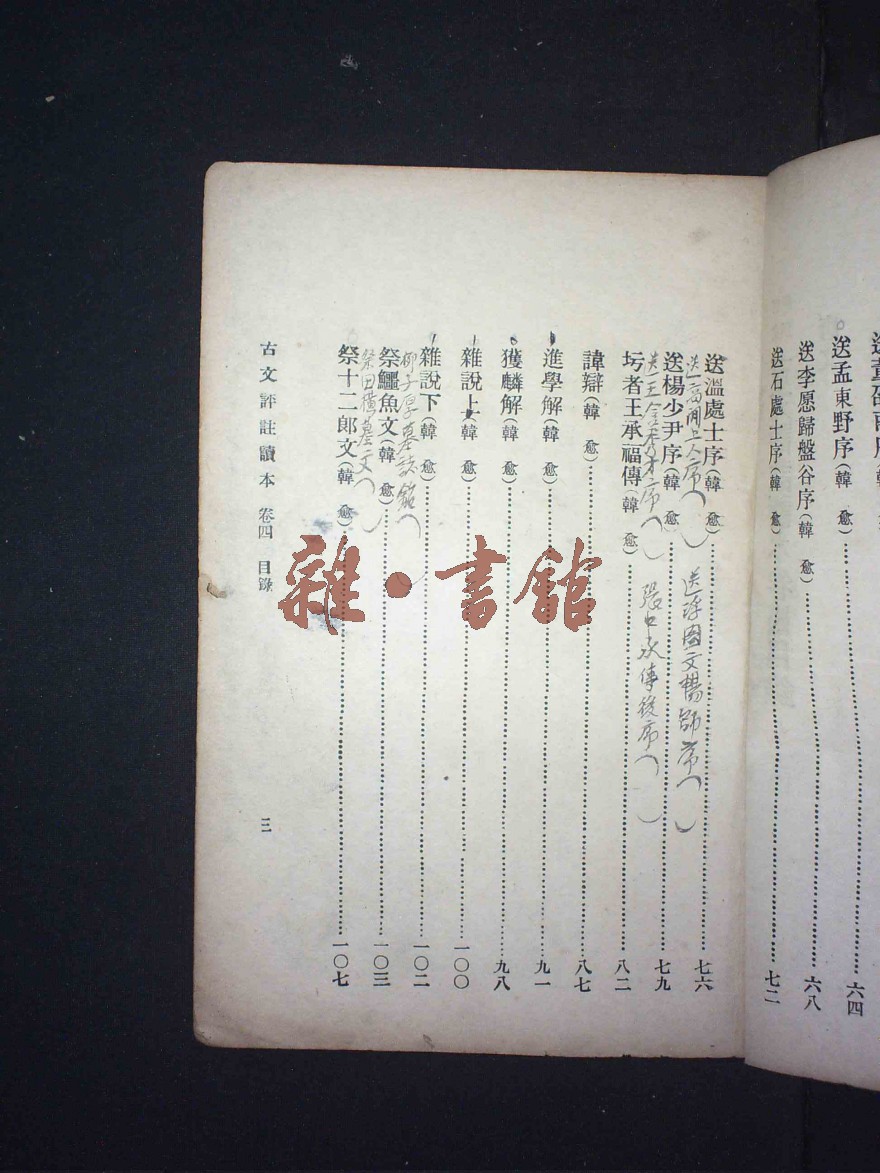 送孟東野序(韓愈)……六四
送李愿歸盤谷序(韓愈)……六八
送石處士序(韓愈)……七二
送溫處士序(韓愈)……七六
送高閑上人序( )
送浮圖文暢師序( )
送楊少尹序(韓愈)……七九
送王秀才序( )
張中丞傳後序( )
圬者王承福傳(韓愈)……八二
諱辯(韓愈)……八七
進學解(韓愈)……九一
獲麟解(韓愈)……九八
雜說上(韓愈)……一〇〇
雜說下(韓愈)……一〇二
柳子厚墓誌銘( )
祭鱷魚文(韓愈)……一〇三
祭田橫墓文( )
祭十二郎文(韓愈)……一〇七
古文評註讀本 卷四 目錄 三
雜·書館